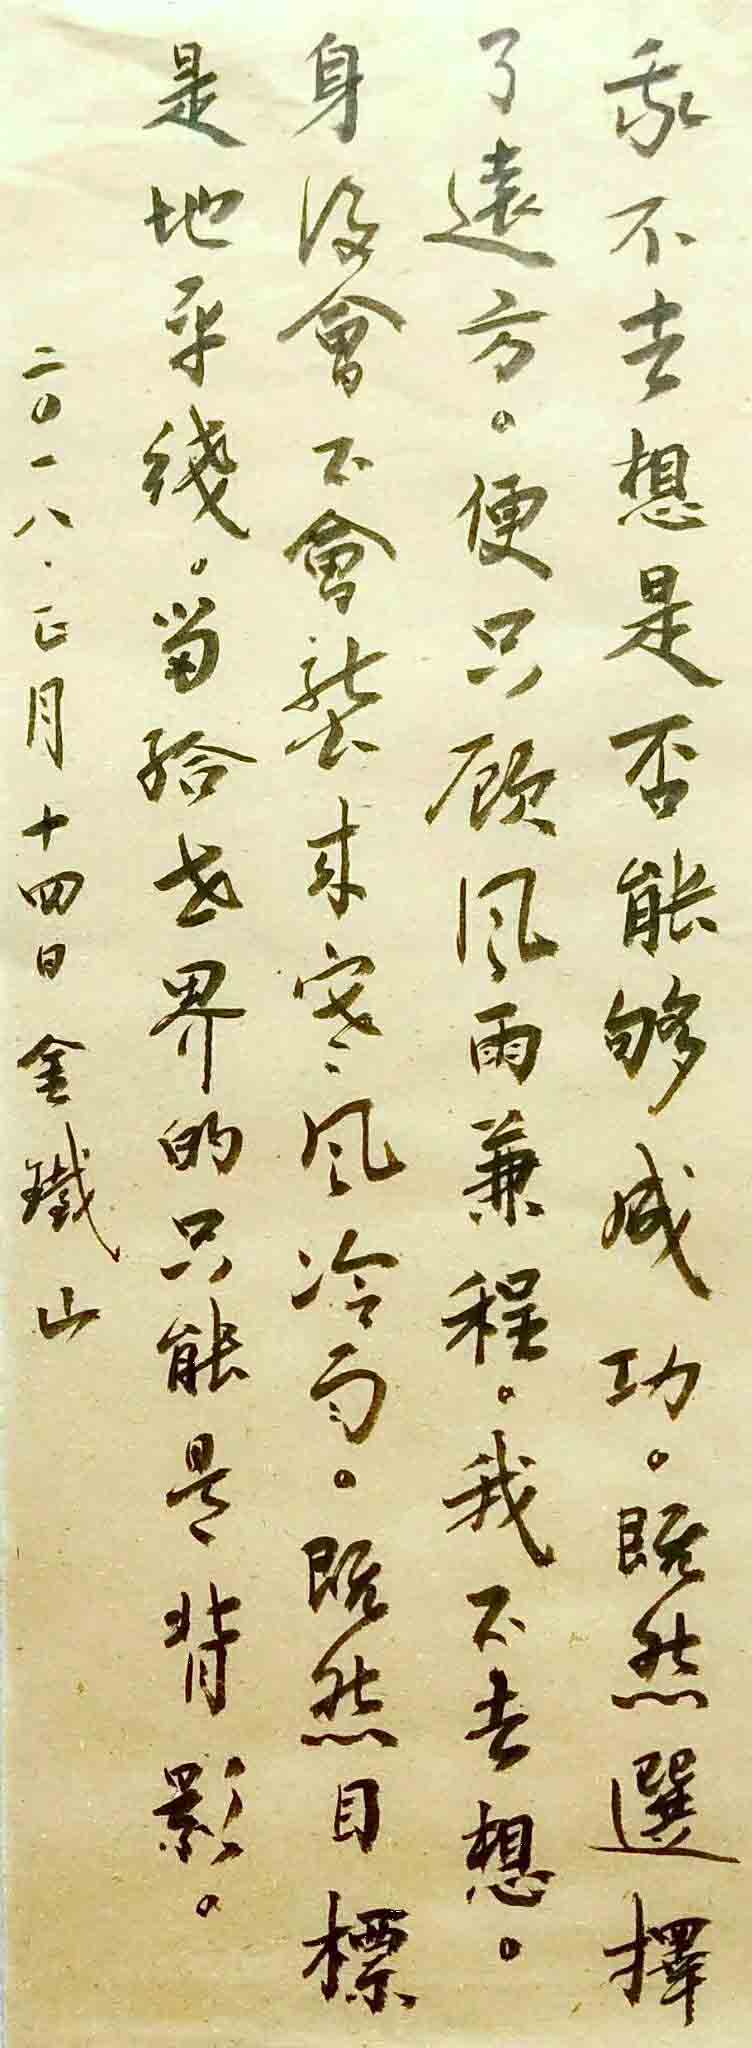 我不去想是否能够成功。既然選擇
了遠方。便只顾风雨兼程。我不去想。
身後會不會袭来寒风冷雨。既然目標
是地平綫。留給世界的只能是背影。
二〇一八.正月十四日金鐵山